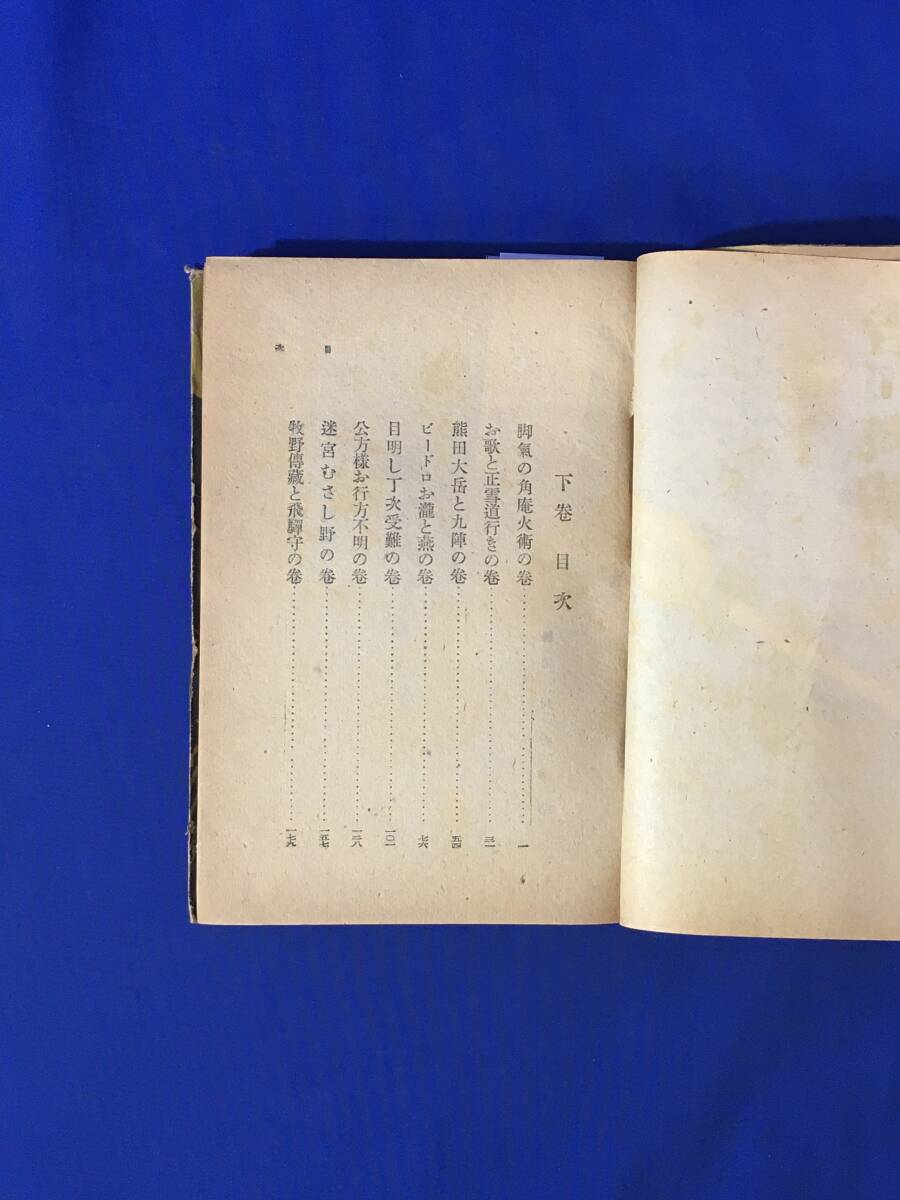 下卷 目次
脚氣の角庵火術の卷……一
お歌と正雪道行きの卷……三一
熊田大岳と九陣の卷……五四
ビードロお瀧と燕の卷……七六
目明し丁次受難の卷……一〇一
公方樣お行方不明の卷……一三八
迷宮むさし野の卷……一五七
牧野傳藏と飛驒守の卷……一七九
目次